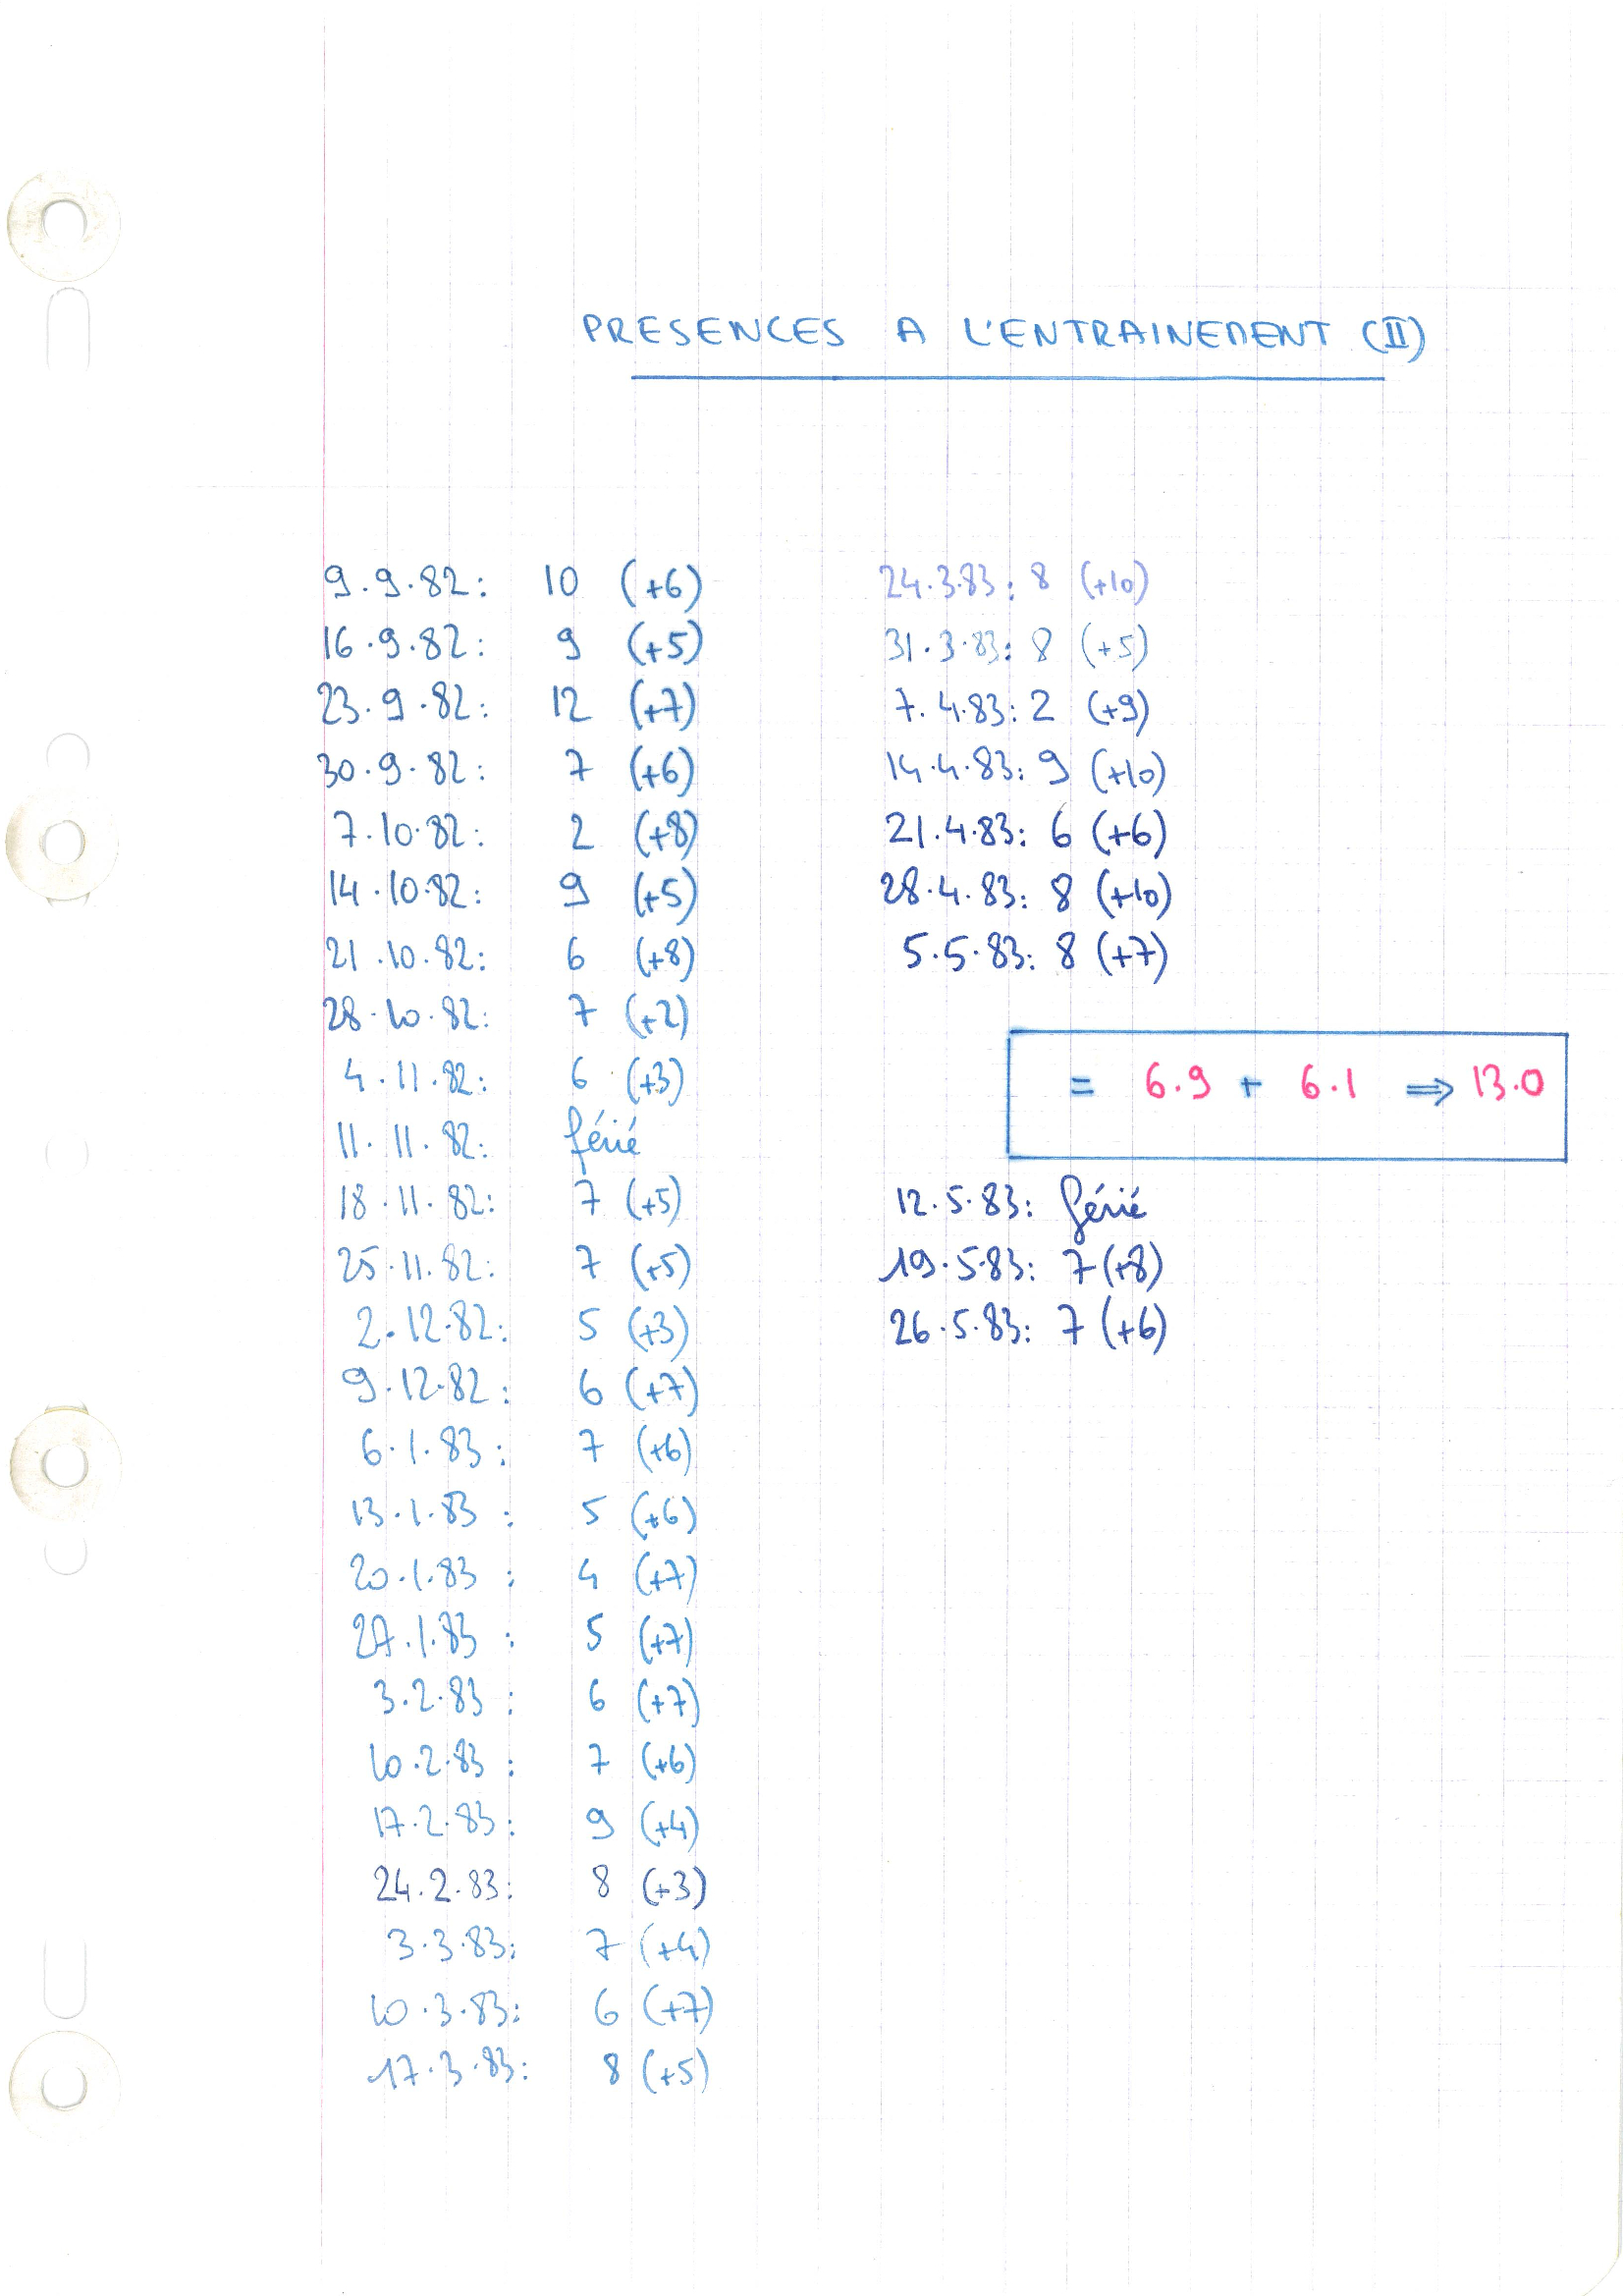 PRESENCES A L'ENTRAINEMENT (II)
9.9.82: 10 (+6)
16.9.82: 9 (+5)
23.9.82: 12 (+7)
30.9.82: 7 (+6)
7.10.82: 2 (+8)
14.10.82: 9 (+5)
21.10.82: 6 (+8)
28.10.82: 7 (+2)
4.11.82: 6 (+3)
11.11.82: férié
18.11.82: 7 (+5)
25.11.82: 7 (+5)
2.12.82: 5 (+3)
9.12.82: 6 (+7)
6.1.83: 7 (+6)
13.1.83: 5 (+6)
20.1.83: 4 (+7)
27.1.83: 5 (+7)
3.2.83: 6 (+7)
10.2.83: 7 (+6)
17.2.83: 9 (+4)
24.2.83: 8 (+3)
3.3.83: 7 (+4)
10.3.83: 6 (+7)
17.3.83: 8 (+5)
24.3.83: 8 (+10)
31.3.83: 8 (+5)
7.4.83: 2 (+9)
14.4.83: 9 (+10)
21.4.83: 6 (+6)
28.4.83: 8 (+10)
5.5.83: 8 (+7)
= 6.9 + 6.1 ⇒ 13.0
12.5.83: férié
19.5.83: 7 (+8)
26.5.83: 7 (+6)